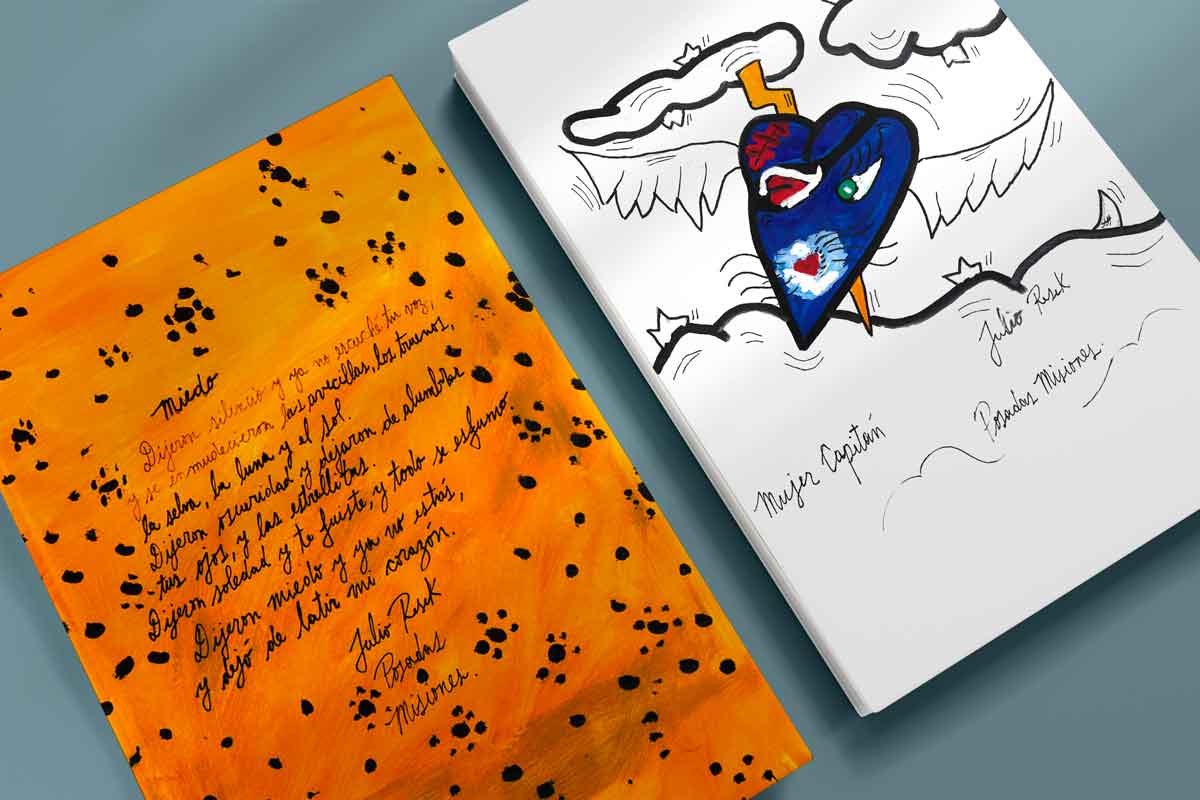 Miedo
Dijeron silencio y ya no escuché tu voz,
y se enmudecieron las avecillas, los truenos,
la selva, la luna y el sol.
Dijeron oscuridad y dejaron de alumbrar
tus ojos, y las estrellitas.
Dijeron soledad y te fuiste, y todo se esfumo
Dijeron miedo y ya no estás,
y dejó de latir mi corazón.
Julio Resek
Posadas
Misiones.
Julio Resek
Posadas Misiones.
Mujer Capitán